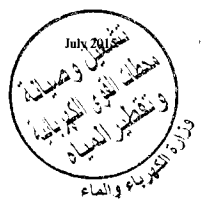 July 201
تشغيل وصيانة
محطات القوى الكهربائية
وتقطير المياه
وزارة الكهرباء والماء